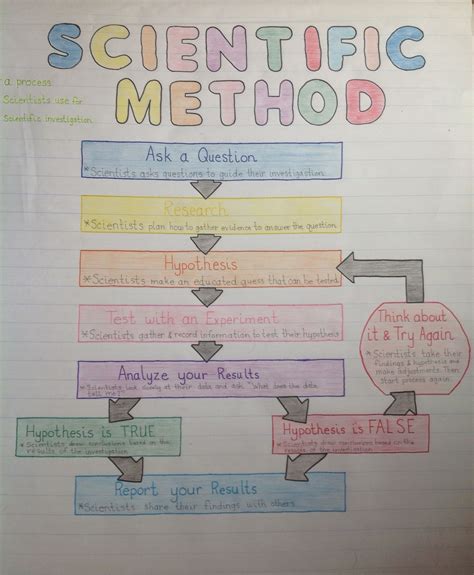 SCIENTIFIC
METHOD
a process
Scientists use for
Scientific investigation.
Ask a Question
*Scientists asks questions to guide their investigation.
Research
*Scientists plan how to gather evidence to answer the question.
Hypothesis
*Scientists make an educated guess that can be tested.
Test with an Experiment
*Scientists gather & record information to test their hypothesis
Analyze your Results
*Scientists look closely at their data and ask "What does the data
tell me?"
Think about
it & Try Again
*Scientists take their
findings & hypothesis and
make adjustments. Then
start process again.
Hypothesis is TRUE
*Scientists draw conclusions based on the
results of the investigation
Hypothesis is FALSE
*Scientists draw conclusions based on the
results of the investigation
Report your Results
*Scientists share their findings with others.